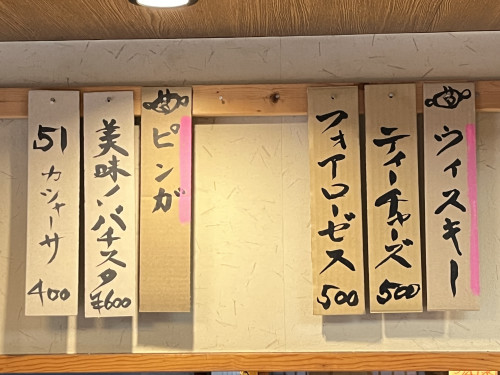 ウィスキー
ティーチャーズ
500
フォアローゼス
500
ピンガ
美味!バチスタ
¥600
51
カシャーサ
400